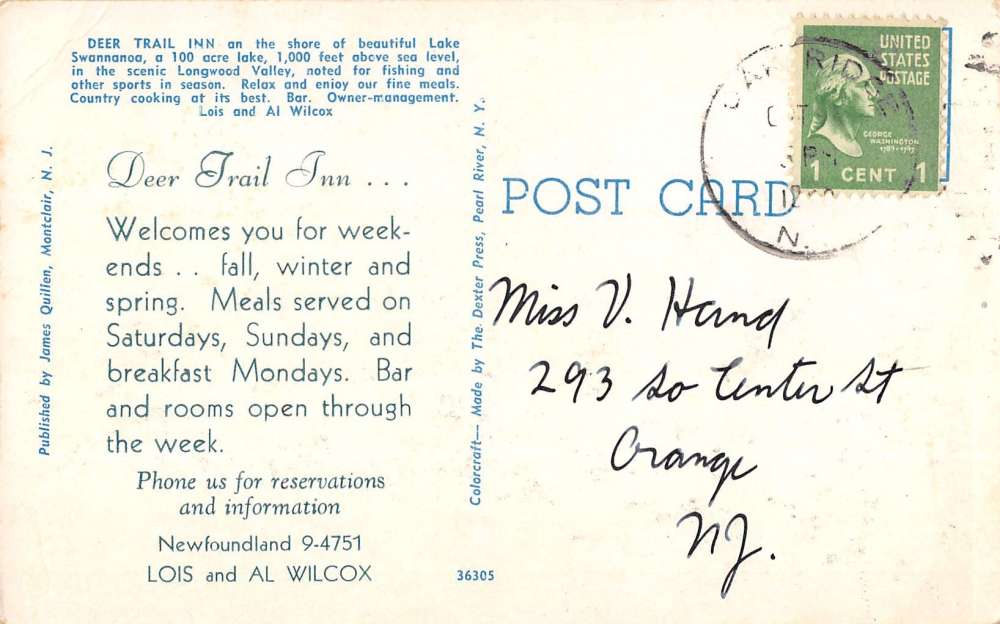 DEER TRAIL INN on the shore of beautiful Lake
Swannanoa, a 100 acre lake, 1,000 feet above sea level,
in the scenic Longwood Valley, noted for fishing and
other sports in season. Relax and enjoy our fine meals.
Country cooking at its best. Bar. Owner-management.
Lois and Al Wilcox
Published by James Quillen, Montclair, N. J.
Deer Trail Inn . . .
Welcomes you for week-
ends . . fall, winter and
spring. Meals served on
Saturdays, Sundays, and
breakfast Mondays. Bar
and rooms open through
the week.
Phone us for reservations
and information
Newfoundland 9-4751
LOIS and AL WILCOX
Colorcraft— Made by The Dexter Press, Pearl River, N. Y.
36305
POST CARD
OAK RIDGE
N.
UNITED
STATES
POSTAGE
GEORGE
WASHINGTON
1789-1797
1 CENT 1
Miss V. Hand
293 So Center St
Orange
NJ.